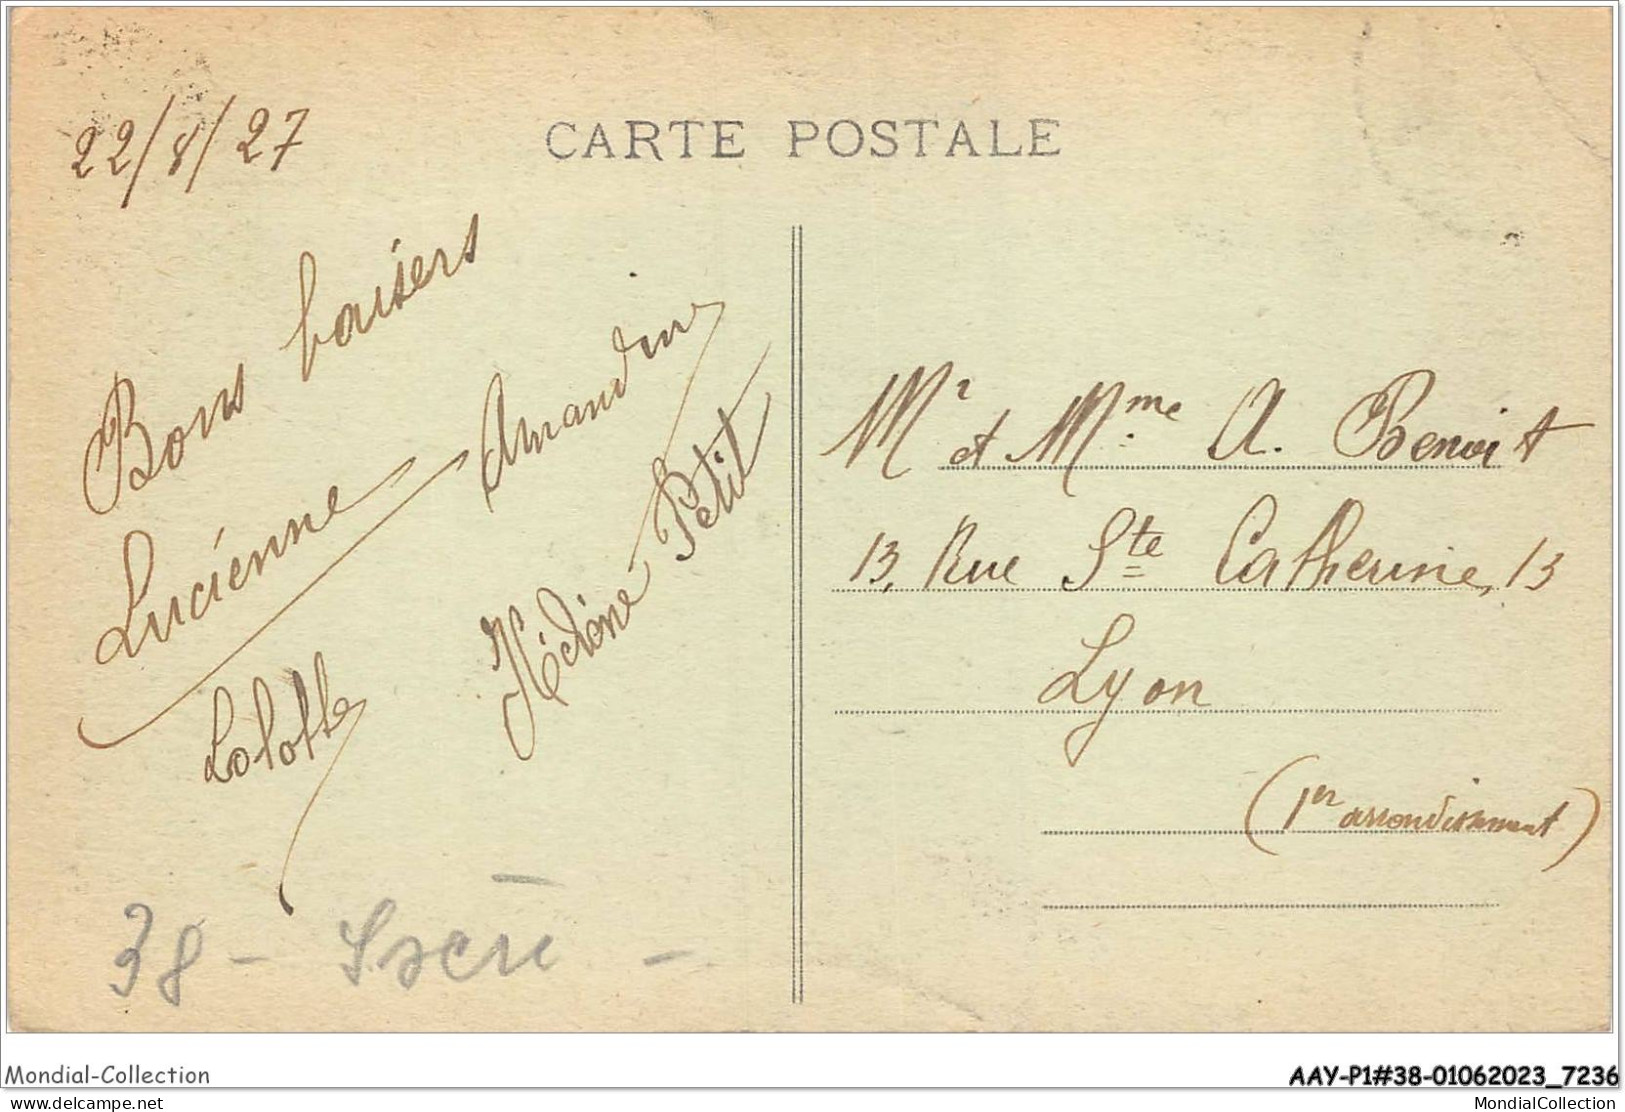 CARTE POSTALE
22/8/27
Bons baisers
Lucienne
Amandine
Lolotte
Petit
Mr et Mme A. Benoit
13, Rue Ste Catherine, 13
Lyon
(1er arrondissement)
38 -
Mondial-Collection
AAY-P1#38-01062023_7236
www.delcampe.net
MondialCollection